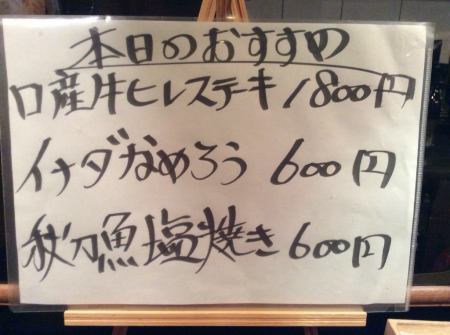 本日のおすすめ
口産牛ヒレステーキ 1800円
イナダなめろう 600円
秋刀魚塩焼き 600円